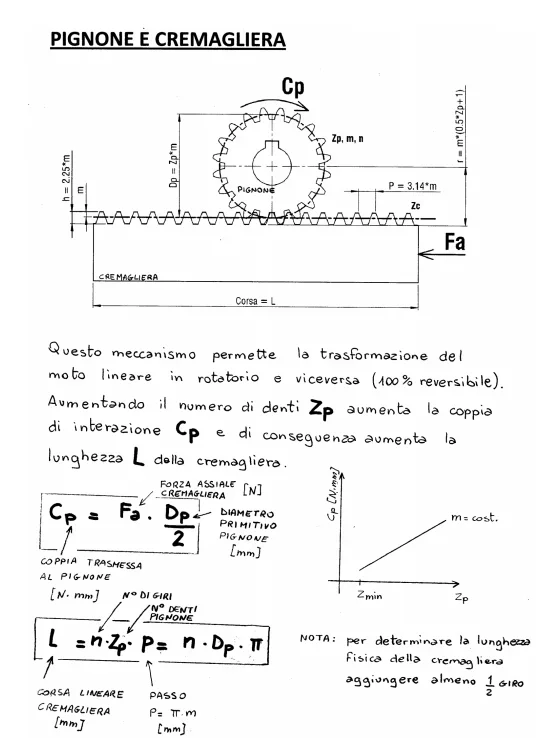 PIGNONE E CREMAGLIERA
Cp
Zp, m, n
Dp = Zp*m
r = m*(0.5*Zp+1)
h = 2.25*m
m
PIGNONE
P = 3.14*m
Zc
Fa
CREMAGLIERA
Corsa = L
Questo meccanismo permette la trasformazione del
moto lineare in rotatorio e viceversa (100% reversibile).
Aumentando il numero di denti Zp aumenta la coppia
di interazione Cp e di conseguenza aumenta la
lunghezza L della cremagliera.
FORZA ASSIALE
CREMAGLIERA [N]
Cp = Fa · Dp/2
DIAMETRO
PRIMITIVO
PIGNONE
[mm]
COPPIA TRASMESSA
AL PIGNONE
[N· mm]
Cp [N·mm]
m = cost.
Zmin
Zp
N° DI GIRI
N° DENTI
PIGNONE
L = n·Zp· P = n · Dp · π
CORSA LINEARE
CREMAGLIERA
[mm]
PASSO
P= π·m
[mm]
NOTA: per determinare la lunghezza
fisica della cremagliera
aggiungere almeno 1/2 GIRO